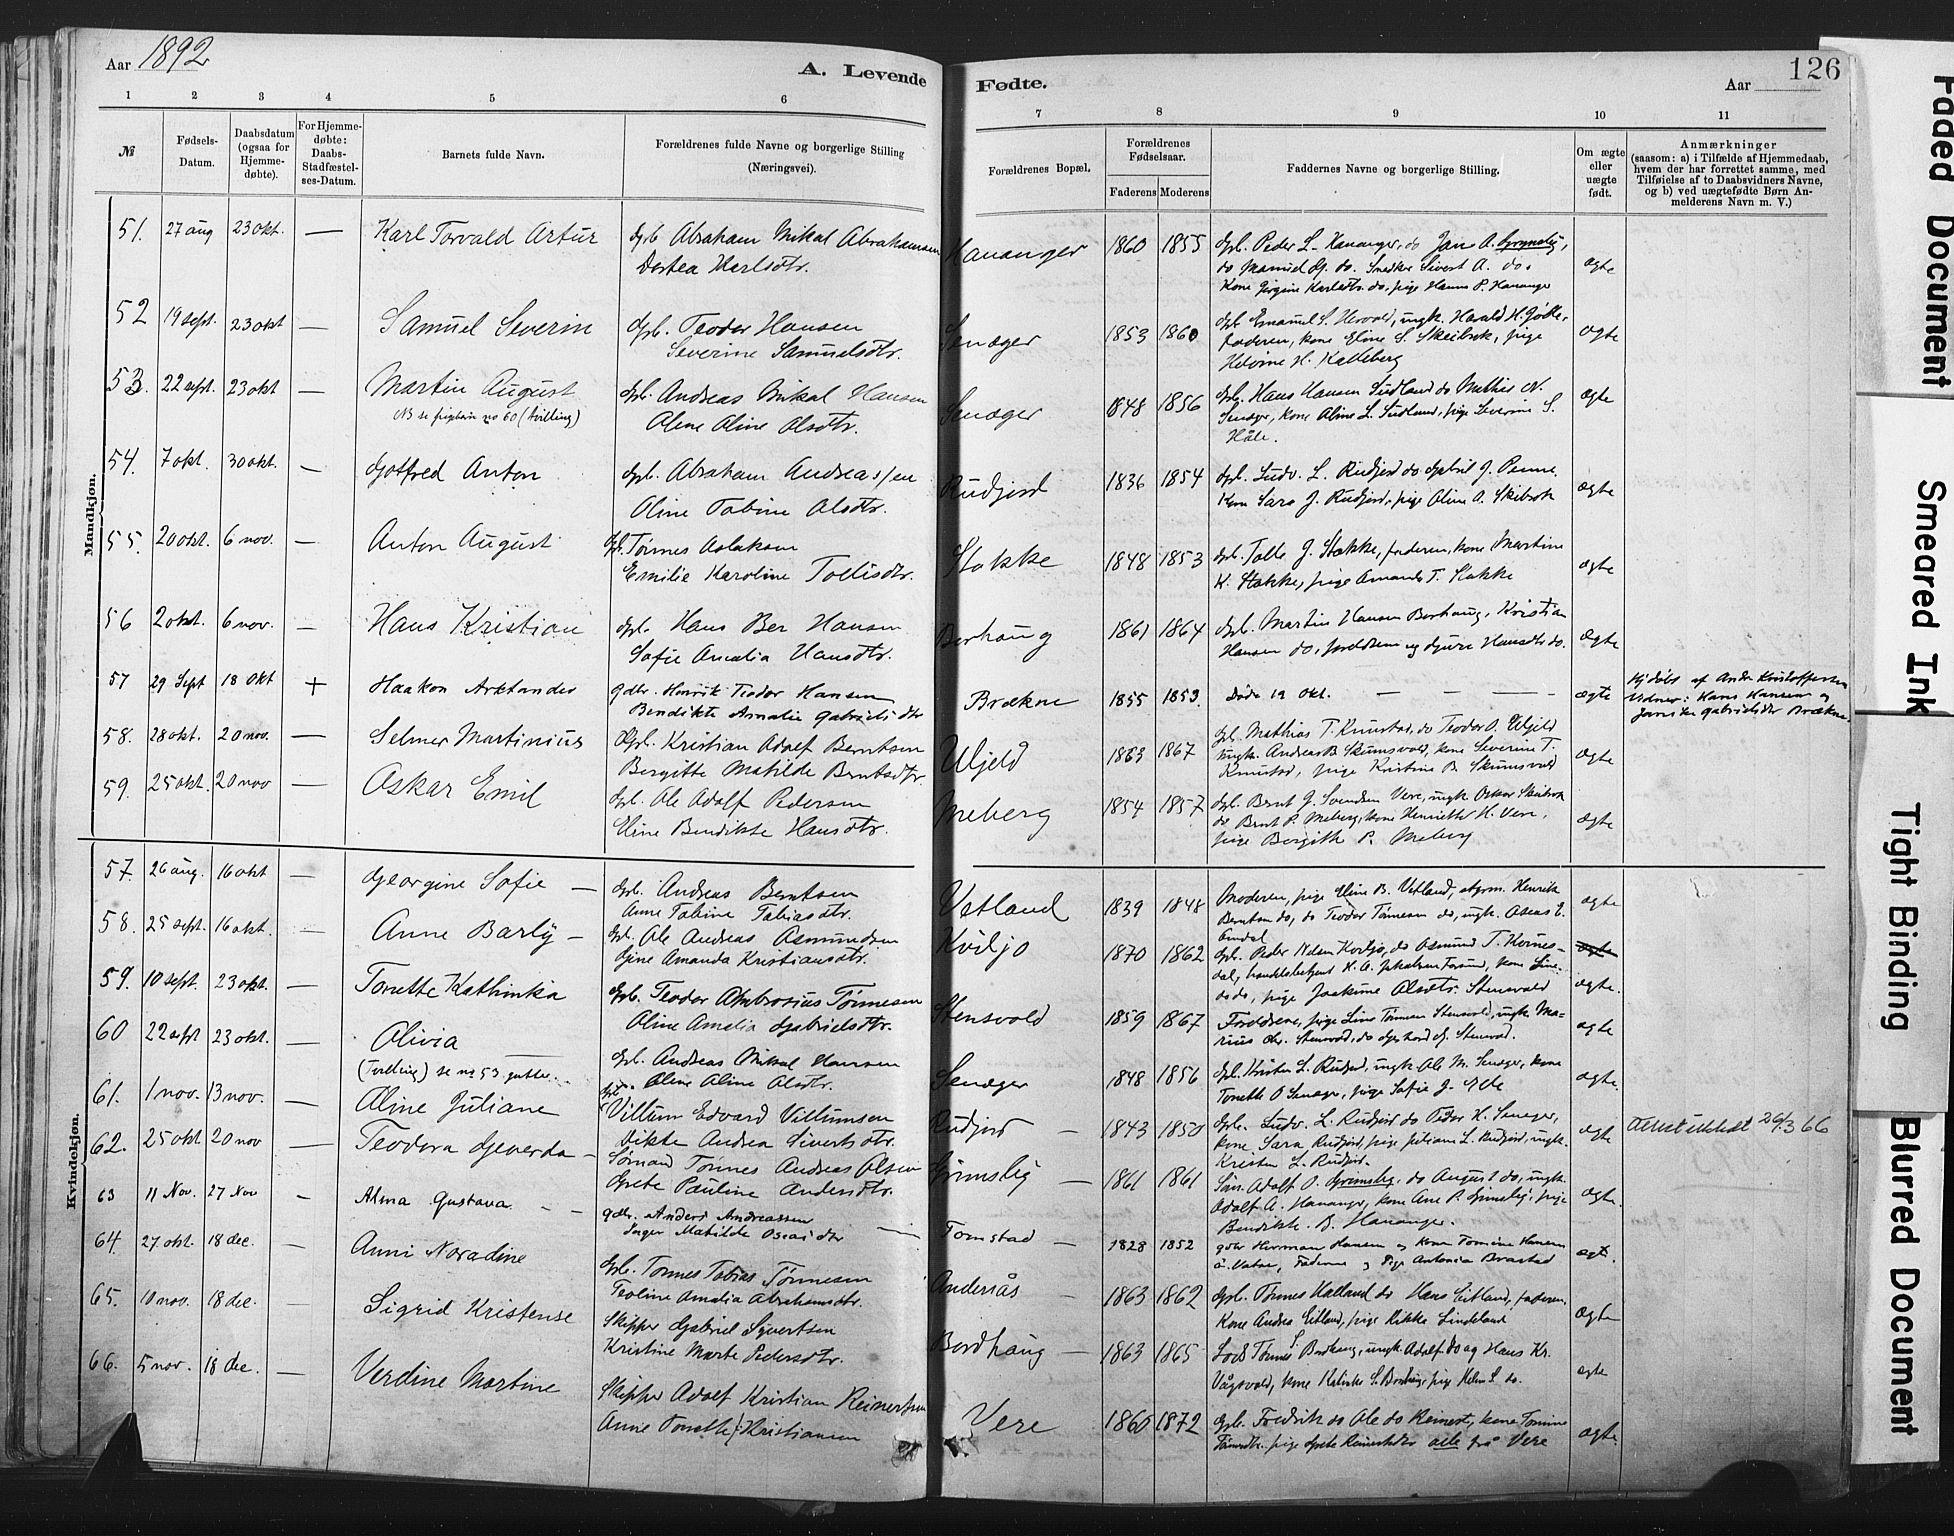 Aar 1892
A. Levende
Fødte.
Aar
126
1 2 3 4 5 6 7 8 9 10 11
№
Fødsels-Datum.
Daabsdatum (ogsaa for Hjemme-døbte).
For Hjemme-døbte: Daabs-Stadfæstel-ses-Datum.
Barnets fulde Navn.
Forældrenes fulde Navne og borgerlige Stilling
(Næringsvei).
Forældrenes Bopæl.
Forældrenes Fødselsaar.
Faderens Moderens
Faddernes Navne og borgerlige Stilling.
Om ægte eller uægte født.
Anmærkninger
(saasom: a) i Tilfælde af Hjemmedaab,
hvem der har forrettet samme, med
Tilføielse af to Daabsvidners Navne,
og b) ved uægtefødte Børn An-
melderens Navn m. V.)
Mandkjøn.
51. 27 aug 23 okt. — Karl Torvald Artur Gbr. Abraham Mikal Abrahamsen
Dortea Karlsdtr.
Hananger 1860 1855 Gbr. Peder L. Hananger, do Jans A. Grymslig,
do Manuel do. Snedker Sivert A. do.
Kone Jørgine Karlsdtr. do, pige Hanna P. Hananger
ægte
52 19 sept. 23 okt — Samuel Severin Gbr. Teodor Hansen
Severine Samuelsdtr.
Senæger 1853 1860 Gbr Emanuel S. ungk. Harald H.
faderen, kone Eline S. Skeibrok, pige
H. Kalleberg
ægte
53. 22 sept. 23 okt — Martin August Gbr. Andreas Mikal Hansen
NB se pigebarn no 60 (Tvilling) Alene Aline Olsdtr.
Senæger 1848 1856 Gbr. Hans Hansen Sudland do Mathis N.
Senæger, kone Aline L. Sudland, pige Severine S.
Håle.
ægte
54. 7 okt. 30 okt. — Gotfred Anton Gbr. Abraham Andreassen
Oline Tobine Olsdtr.
Rudjord 1836 1854 Gbr. Ludv. L. Rudjord do Gabriel J. Penne
Kone Sara J. Rudjord, pige Aline A. Skibrok
ægte
55. 20 okt. 6 nov. — Anton August Gbr. Tønnes Aslaksen
Emilie Karoline Tollisdtr.
Stokke 1848 1853 Gbr. Tolle J. Stokke, faderen, kone Martine
K. Stokke, pige Amanda T. Stokke
ægte
56 2 okt. 6 nov. — Hans Kristian Gbr. Hans Ber Hansen
Sofie Amalia Hansdtr.
Borhaug 1861 1864 Gbr. Martin Hansen Borhaug, Kristian
Hansen do, forældrene og Hansdtr do.
ægte
57 29 Sept 18 Okt + Haakon Arktander gdbr. Henrik Teodor Hansen
Bendikte Amalie Gabrielsdtr
Brækne 1855 1853. Døde 19 Okt. — — — ægte
Hjdøbt af Anders Kristoffersen
Vidner: Hans Hansen og
Gabrielsdtr Brækne.
58. 28 okt. 20 nov. — Selmer Martinius Gbr. Kristian Adolf Berntsen
Bergitte Matilde Berntsdtr.
Ulgjeld 1863 1867 Gbr. Mathias T. Knustad, do Teodor O. Ulgjeld
ungk. Andreas B. Skumsvold, kone Severine T.
Knustad, pige Kristine B. Skumsvold
ægte
59. 25 okt. 20 nov — Oskar Emil Gbr. Ole Adolf Pedersen
Eline Bendikte Hansdtr.
Meberg 1854 1857 Gbr. Bernt G. Svendsen Vere, ungk. Oskar Skeibrok
do Bernt P. Meberg, kone Henriette H. Vere,
pige Bergitte P. Meberg
ægte
Kvindekjøn.
57. 26 aug. 16 okt — Georgine Sofie — Gbr. Andreas Berntsen
Anne Tobine Tobiasdtr.
Vetland 1839 1848 Moderen, pige Eline B. Vetland, Henrik
Berntsen do, do Teodor Tønnesen do, ungk.
ægte
58. 25 sept. 16 okt. — Anne Barly — Gbr. Ole Andreas Asmundsen
Gine Amanda Kristiansdtr.
Kviljo 1870 1862 Gbr. Peder Nilsen Kviljo, do Osmund T.
dal, handelsbetjent kone
do do, pige Joakime Olsdtr. Stensvold
ægte.
59. 10 sept. 23 okt. — Tonette Kathinka Gbr. Teodor Ambrosius Tønnesen
Aline Amalia Gabrielsdtr.
Stensvold 1859 1867 Forældrene, pige Line Tønnesen Stensvold, ungk. Ma-
rius Stensvold, do Stensvold.
ægte
60 22 sept 23 okt. — Olivia
(Tvilling) se no 53 gutter. Gbr. Andreas Mikal Hansen
Alene Aline Olsdtr.
Senæger 1848 1856 Gbr. Kristen L. Rudjord, ungk Ole M. Senæger, kone
Tonette O Senæger, pige Sofie J.
ægte.
61. 1 nov. 13 nov. — Aline Juliane Gbr. Villum Edvard Villumsen
Vikte Andrea Sivertsdtr.
Rudjord — 1843 1850 Gbr. Ludv. L. Rudjord do Peder K. Senæger,
kone Sara Rudjord, pige Juliane L. Rudjord, ungk.
Kristen L. Rudjord.
ægte
26/3 66
62. 25 okt 20 nov — Teodora Geverda — Sømand Tønnes Andreas Olsen
Grete Pauline Andersdtr.
Grimslig — 1861 1861 Søm. Adolf O. Grimslig, do August do, ungk.
Adolf A. Hananger, kone Ane P. Grimslig, pige
Bendikte B. Hananger.
ægte.
63 11 Nov. 27 Nov — Alma Gustava — — gdbr. Anders Andreassen
Inger Matilde Osaisdtr
Tomstad — 1828 1852 gdbr Herman Hansen og kone Tomine Hansen
Vatne, Faderen og Pige Antonia Brastad
ægt.
64. 27 okt. 18 dec. — Anni Noradine Gbr. Tønnes Tobias Tønnesen
Teoline Amalia Abrahamsdtr.
Andersås — 1863 1862 Gbr. Tønnes Hatland do Hans Eitland, faderen,
Kone Andrea Eitland, pige Rikka Lindeland
ægte
65. 10 nov. 18 dec. — Sigrid Kristense Skipper Gabriel Syvertsen
Kristine Marte Pedersdtr.
Bordhaug — 1863 1865 Lods Tønnes S. Bordhaug, ungk. Adolf do og Hans Kr.
Vågsvold, kone Kaliste S. Bordhaug, pige Helene S. do.
ægte
66. 5 nov. 18 dec. — Verdine Martine Skipper Adolf Kristian Reinertsen
Anne Tonette Kristiansen
Vere 1865 1872 Gbr. Fredrik do Ole do Reinert, kone Tomine
Tønnesdtr. pige Grete Reinertsdtr alle frå Vere
ægte.
Faded Document
Smeared Ink
Tight Binding
Blurred Document